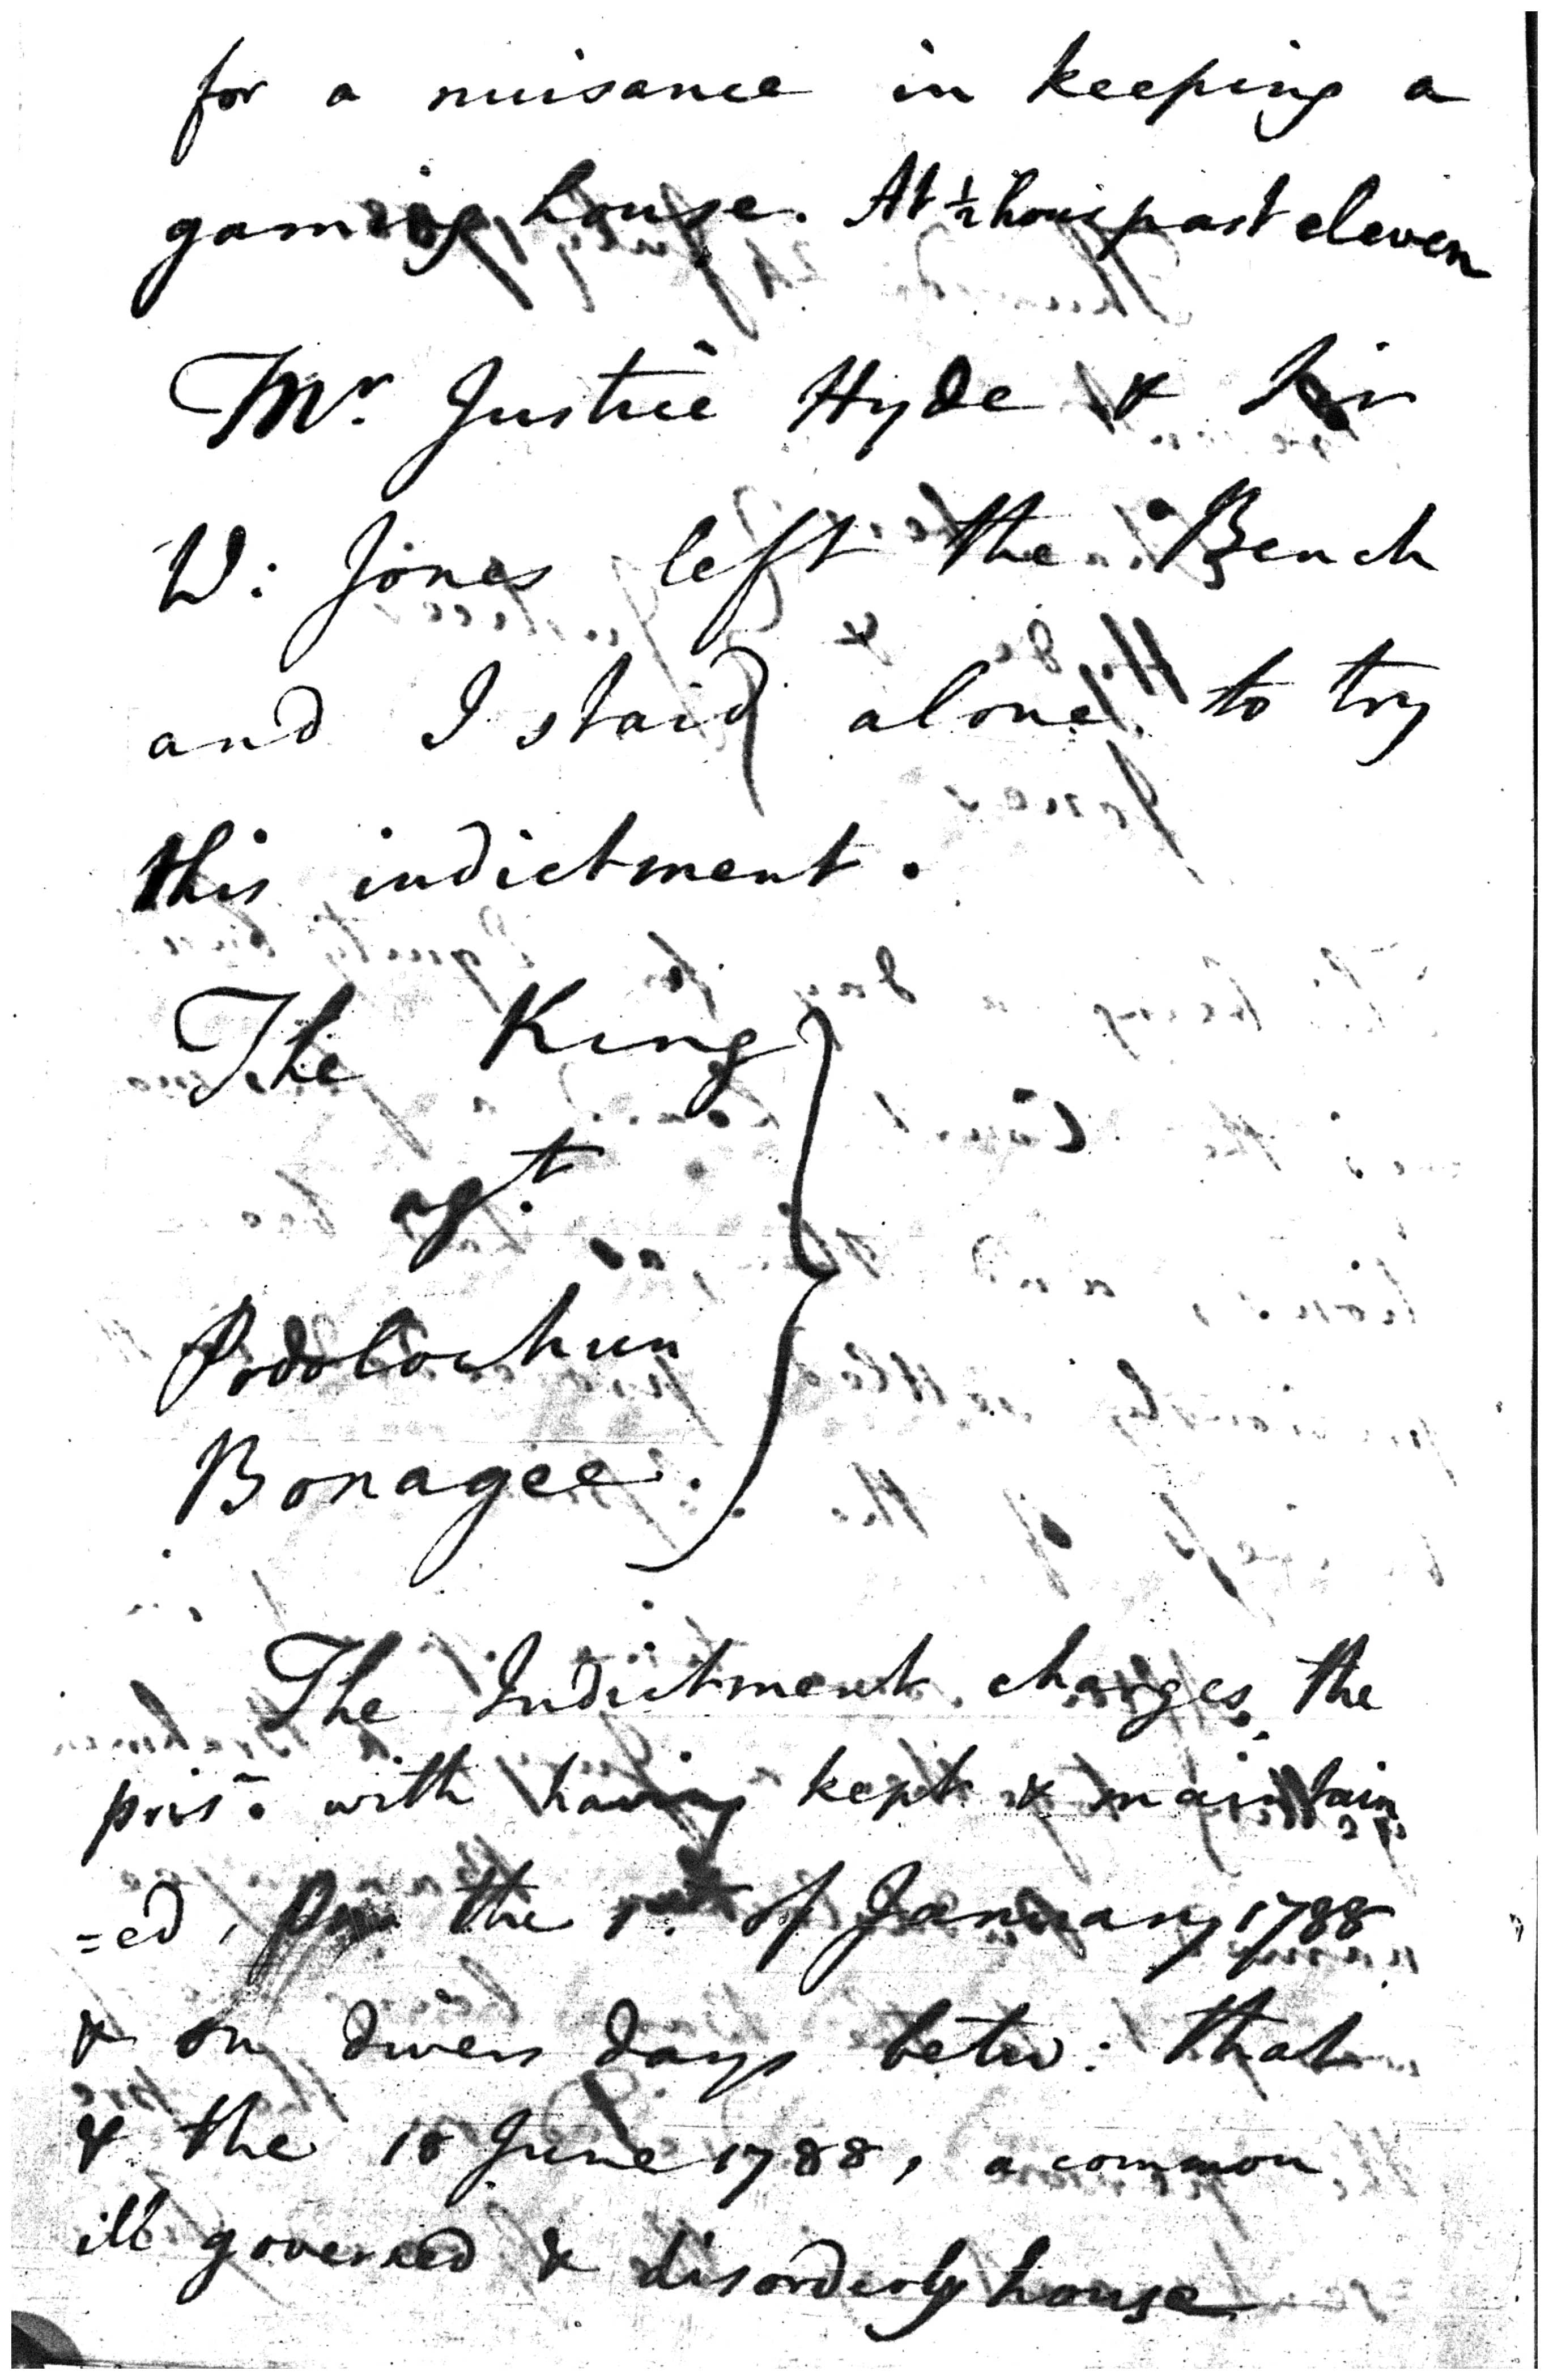 for a nuisance in keeping a
gaming house. At ½ hour past eleven
Mr. Justice Hyde & Sir
W: Jones left the Bench
and I staid alone to try
this indictment.
The King
agt.
Podolochun
Bonagee.
The Indictment charges the
prisr. with having kept & maintain
=ed, the 1st. of January 1788
& on divers days betw: that
& the 18 June 1788, a common
ill governed & disorderly house